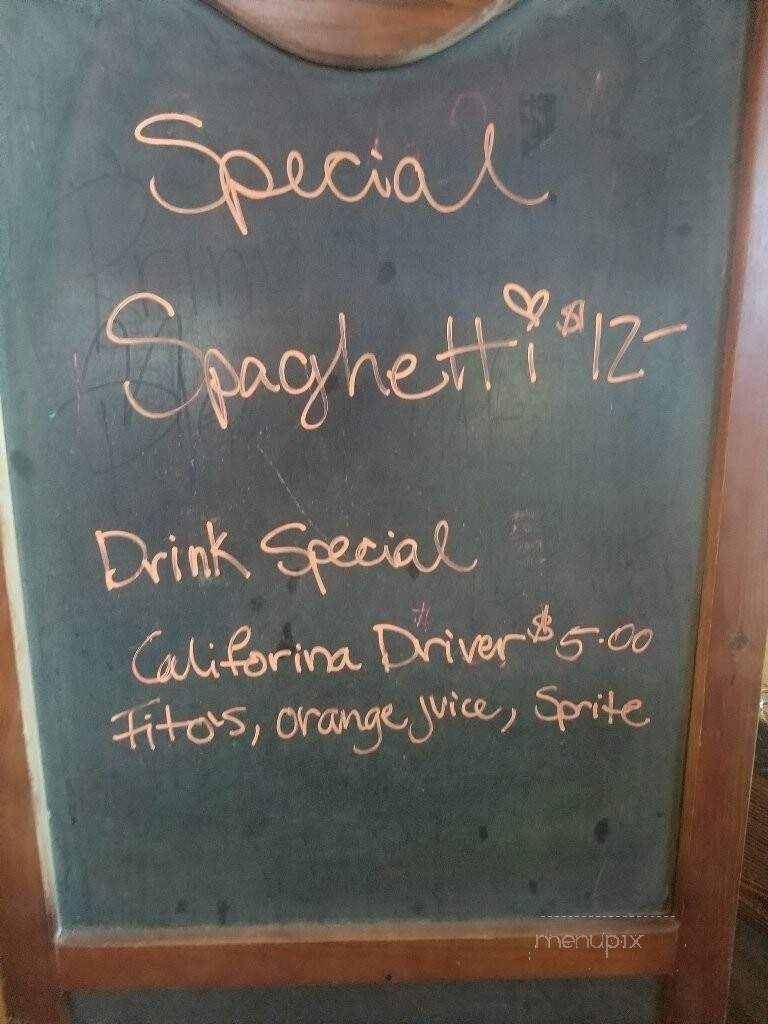 Special
Spaghetti $12-
Drink Special
Califorina Driver $5.00
Tito's, orange juice, Sprite
menupix